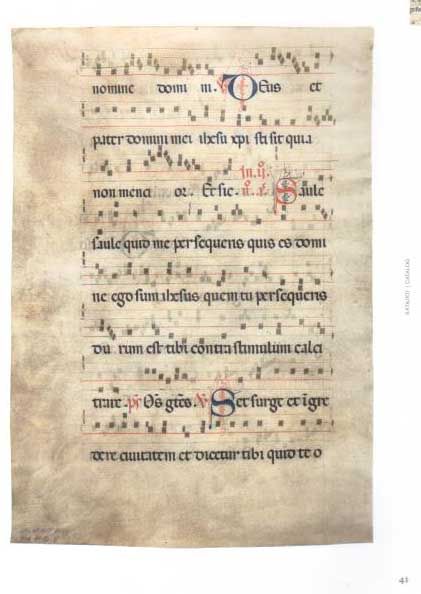 nomine domi ni. V. Deus et
pater domini mei ihesu xpi scit quia
non mencior. Et sic.
Saule
saule quid me persequeris quis es domi
ne ego sum ihesus quem tu persequeris
du rum est tibi contra stimulum calci
trare. Os gtes. V Set surge et igre
dere civitatem et dicetur tibi quid te o
KATALOG | CATALOG
41